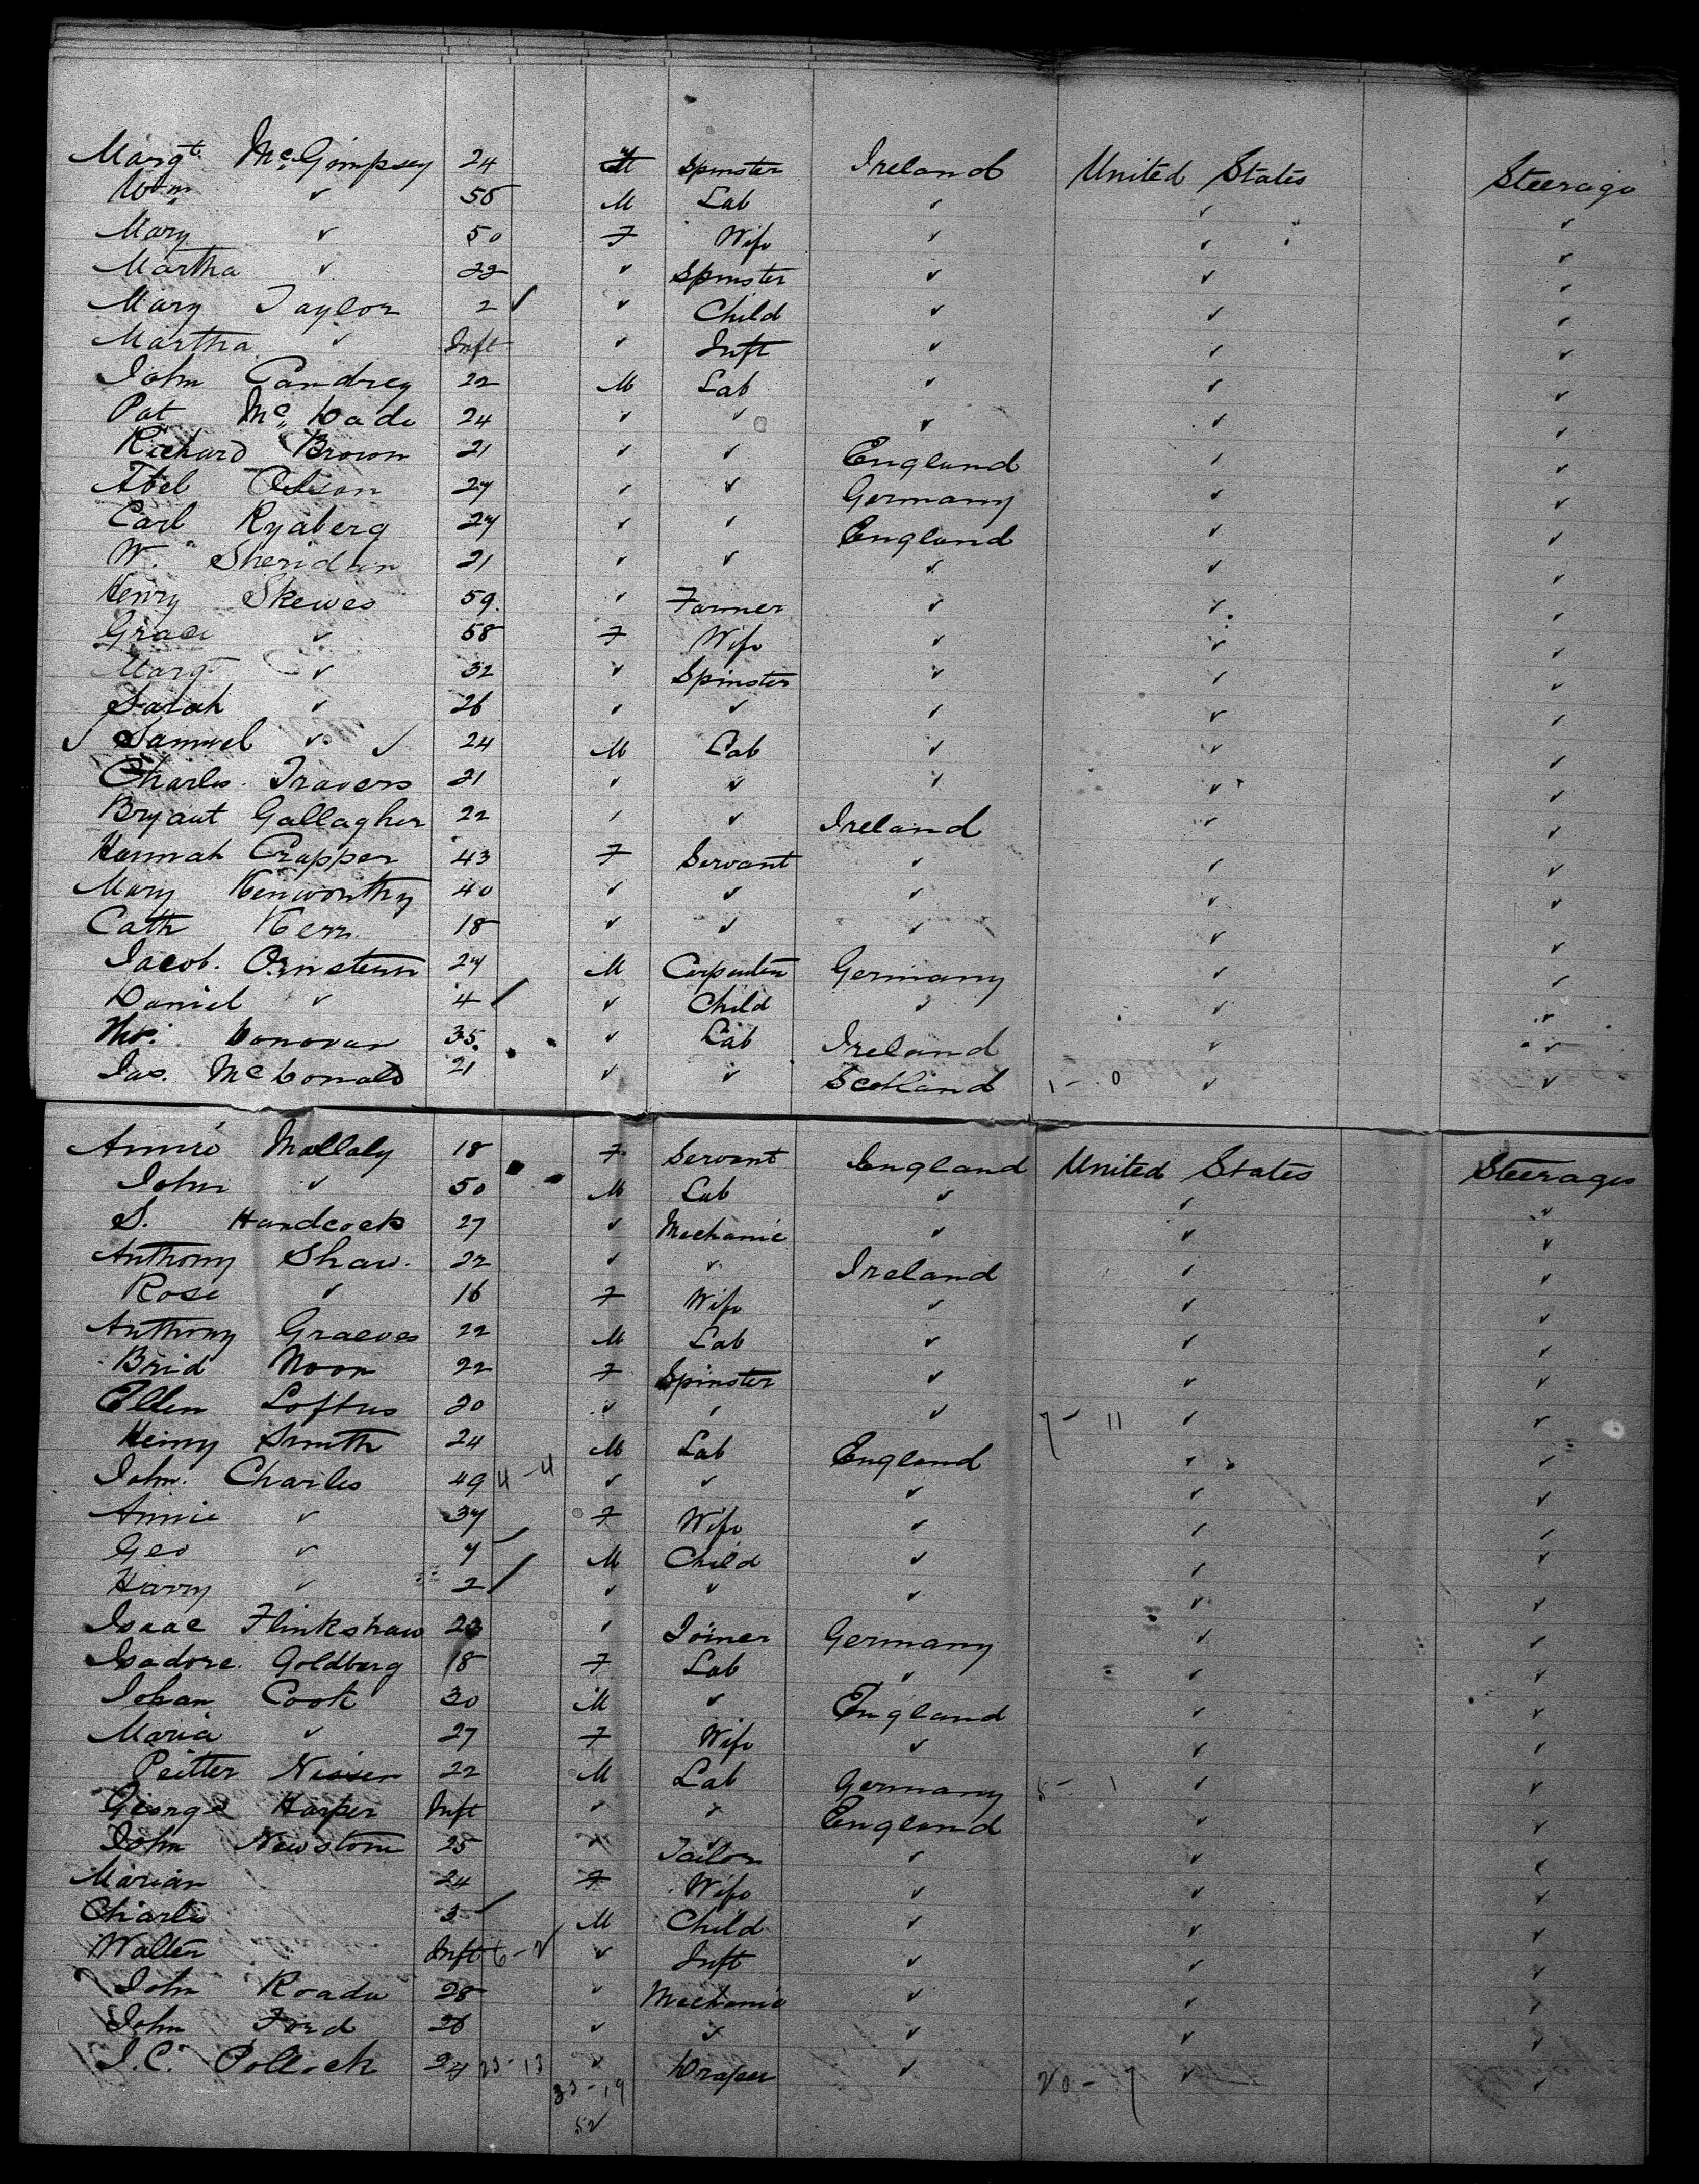 Margt. McGimpsey 24 F Spinster Ireland United States Steerage
Wm ✓ 58 M Lab ✓ ✓ ✓
Mary ✓ 50 F Wife ✓ ✓ ✓
Martha ✓ 22 ✓ Spinster ✓ ✓ ✓
Mary Taylor 2 ✓ ✓ Child ✓ ✓ ✓
Martha ✓ Inft ✓ Inft ✓ ✓ ✓
John 22 M Lab ✓ ✓ ✓
Pat McDade 24 ✓ ✓ ✓ ✓ ✓
Richard Brown 21 ✓ ✓ England ✓ ✓
Abel Olsson 27 ✓ ✓ Germany ✓ ✓
Carl Ryaberg 27 ✓ ✓ England ✓ ✓
W. Sheridan 21 ✓ ✓ ✓ ✓ ✓
Henry Skewes 59. ✓ Farmer ✓ ✓ ✓
Grace ✓ 58 F Wife ✓ ✓ ✓
Margt ✓ 32 ✓ Spinster ✓ ✓ ✓
Sarah ✓ 26 ✓ ✓ ✓ ✓ ✓
✓ Samuel ✓ ✓ 24 M Lab ✓ ✓ ✓
Charles Travers 21 ✓ ✓ ✓ ✓ ✓
Bryant Gallagher 22 ✓ ✓ Ireland ✓ ✓
Hannah Crapper 43 F Servant ✓ ✓ ✓
Mary Kenworthy 40 ✓ ✓ ✓ ✓ ✓
Cath Kerr 18 ✓ ✓ ✓ ✓ ✓
Jacob. Ornstein 27 M Carpenter Germany ✓ ✓
Daniel ✓ 4 ✓ ✓ Child ✓ ✓ ✓
Thos. Donovan 35. ✓ Lab Ireland ✓ ✓
Jas. McDonald 21 ✓ ✓ Scotland 1 - 0 ✓ ✓
Annie Mallaly 18 F Servant England United States Steerage
John ✓ 50 M Lab ✓ ✓ ✓
S. Handcock 27 ✓ Mechanic ✓ ✓ ✓
Anthony Shaw. 22 ✓ ✓ Ireland ✓ ✓
Rose ✓ 16 F Wife ✓ ✓ ✓
Anthony Graeves 22 M Lab ✓ ✓ ✓
Brid Noon 22 F Spinster ✓ ✓ ✓
Ellen Loftus 20 ✓ ✓ ✓ 7 - 11 ✓ ✓
Henry Smith 24 M Lab England ✓ ✓
John. Charles 49 4 - 4 ✓ ✓ ✓ ✓ ✓
Annie ✓ 37 F Wife ✓ ✓ ✓
Geo ✓ 7 ✓ M Child ✓ ✓ ✓
Harry ✓ 2 ✓ ✓ ✓ ✓ ✓ ✓
Isaac Flinkshaw 23 ✓ Joiner Germany ✓ ✓
Isadore. Goldberg 18 F Lab ✓ ✓ ✓
Johan Cook 30 M ✓ England ✓ ✓
Maria ✓ 27 F Wife ✓ ✓ ✓
Peitter Nissen 22 M Lab Germany 8 - 1 ✓ ✓
George Harper Inft ✓ ✓ England ✓ ✓
John Newstone 25 ✓ Tailor ✓ ✓ ✓
Marian 24 F Wife ✓ ✓ ✓
Charles 3 ✓ M Child ✓ ✓ ✓
Walter Inft 6 - 2 ✓ Inft ✓ ✓ ✓
John Roadu 28 ✓ Mechanic ✓ ✓ ✓
John Ford 26 ✓ ✓ ✓ ✓ ✓
J. C. Pollock 24 23 - 13 ✓ Draper ✓ 20 - 7 ✓ ✓
33 - 19
52